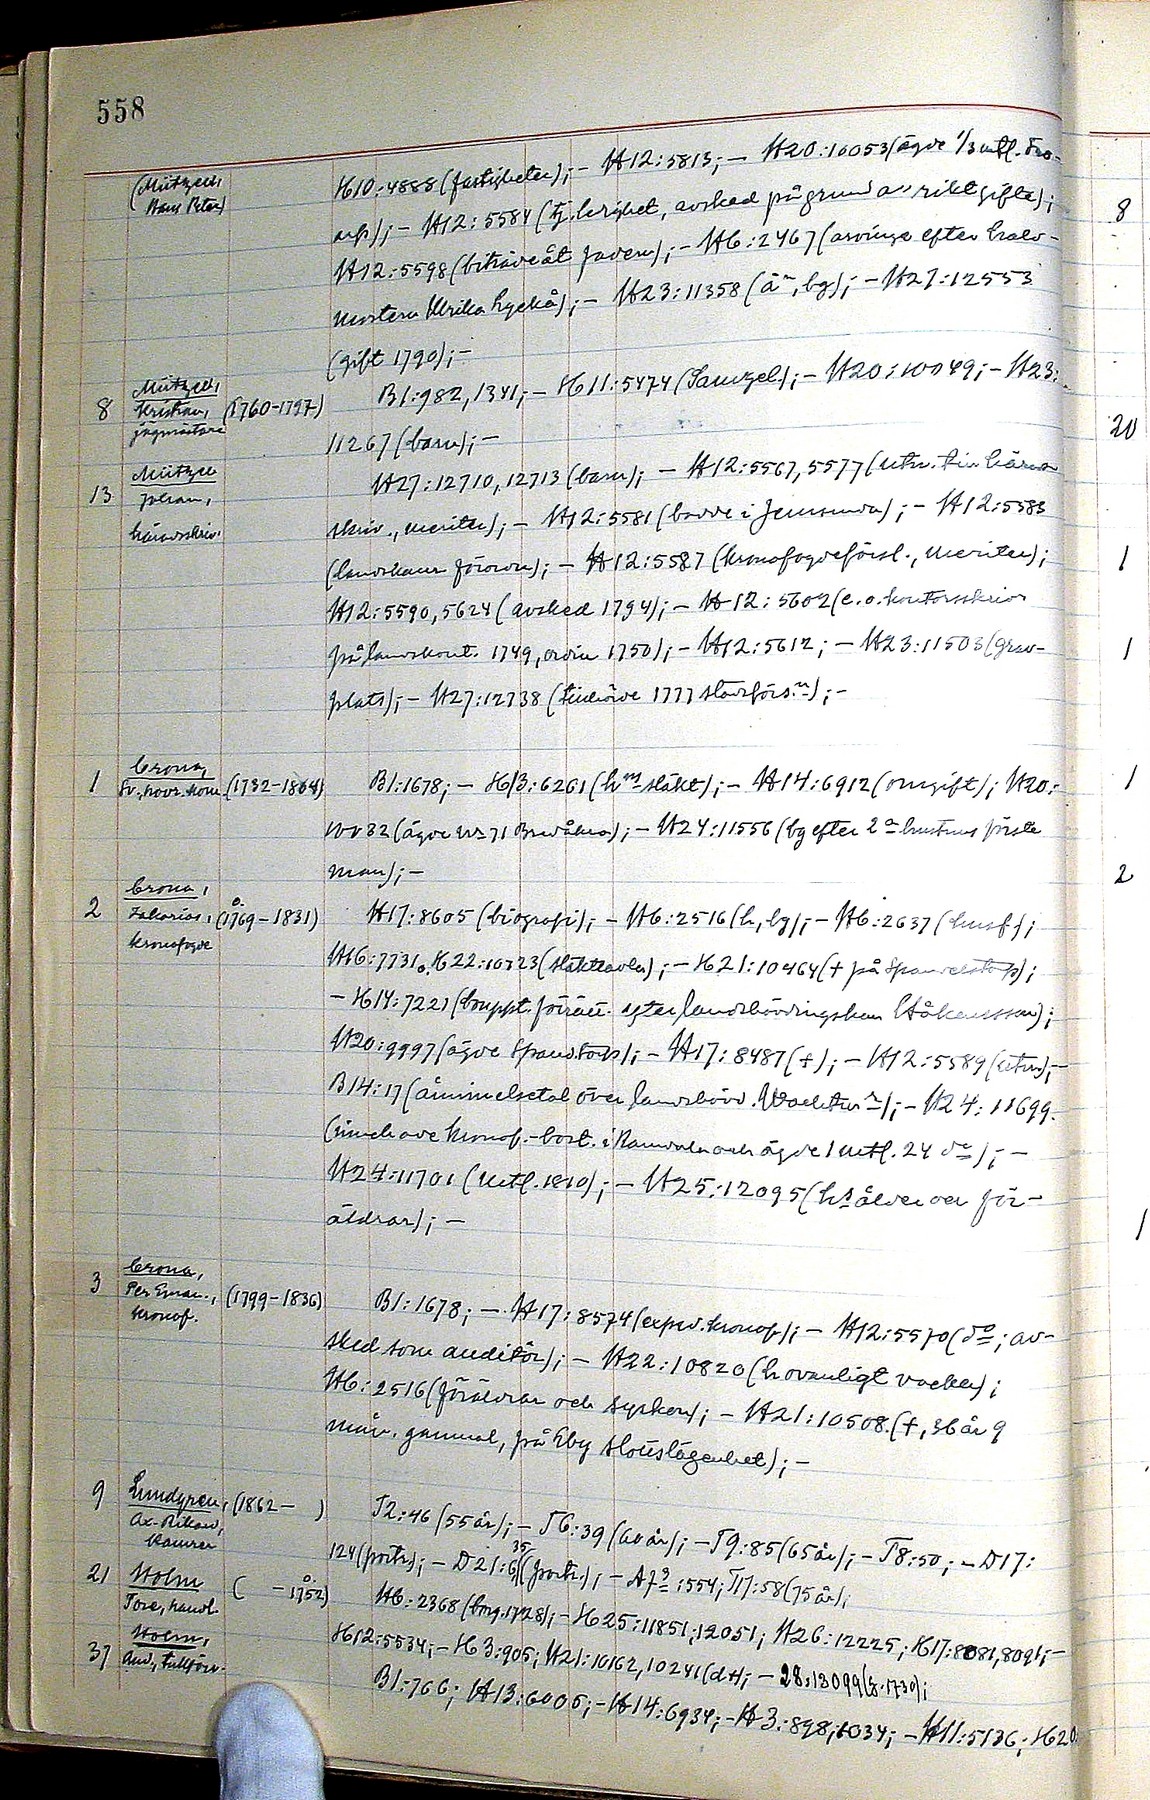 558
(Mützell, Hans Peter) H10:4888 (fastigheter);- H12:5813;- H20:10053 (ägde 1/3 mtl. Tro-
arp);- H12:5584 (tj.ledighet, avsked på grund a" rikt gifte);
H12:5598 (biträde åt fadern);- H6:2467 (arvinge efter halv-
mostern Ulrika Lyckå);- H23:11358 (ä~, bg);- H27:12553
(gift 1790);-
8 Mützell, Kristian, jägmästare (1760-1797) B1:982, 1341;- H11:5474 (Samzel);- H20:10049;- H23:
11267 (barn);-
13 Mützell Johan, häradsskriv. H27:12710, 12713 (barn);- H12:5567, 5577 (utn. till härads
skriv., meriter);- H12:5581 (bodde i Jemsunda);- H12:5583
(landskam förordn);- H12:5587 (kronofogdeförsl., meriter);
H12:5590, 5624 (avsked 1794);- H12:5602 (e.o. kontorsskriv
på landskont. 1749, ordin 1750);- H12:5612;- H23:11503 (grav-
plats);- H27:12738 (tillhörde 1777 stadsförs.n);-
1 Crona, Sv., hovr. kom. (1732-1804) B1:1678;- H13:6261 (hm släkt);- H14:6912 (omgift); H20:
10032 (ägde nr 71 Bredåkra);- H24:11556 (bg efter 2a hustrus förste
man);-
2 Crona, Zakarias, kronofogde (1769-1831) H17:8605 (biografi);- H6:2516 (h, bg);- H6:2637 (husf);
H16:7731. H22:10723 (släkttavla);- H21:10464 (+ på Spandelstorp);
- H14:7221 (bouppt. förrätt. efter landshövdingskan Håkansson);
H20:9997 (ägde Spandstorp);- H17:8487 (+);- H12:5589 (utn);-
B14:17 (åminnelsetal över landshövd. Wachtm~r);- H24:11699.
(innehade kronof.-bost. i Ramdala och ägde 1 mtl. 24 do);-
H24:11701 (mtl. 1810);- H25:12095 (hs ålder och för-
äldrar);-
3 Crona, Per Eman., kronof. (1799-1836) B1:1678;- H17:8574 (exped. kronof);- H12:5570 (do; av-
sked som auditör);- H22:10820 (h ovanligt vacker);
H6:2516 (föräldrar och syskon);- H21:10508. (+, 36 år 9
mån. gammal, på Eby slottslägenhet);-
9 Lundgren, Ax. Rikard, kamrer (1862- ) T2:46 (55 år);- T6:39 (60 år);- T9:85 (65 år);- T8:50;- D17:
124 (portr);- D21:6, 35 (portr.);- A7 3:554; T17:58 (75 år);
21 Holm Tore, handl. ( -1752) H6:2368 (borg. 1728);- H25:11851, 12051; H26:12225; H17:8081, 8091;-
H12:5534;- H3:905; H21:10162, 10241 (d+);- 28:13099 (g. 1730);
37 Holm, And., tullförv. B1:766; H13:6006;- H14:6934;- H3:898, 1034;- H11:5136; H20
8
20
1
1
1
2
1